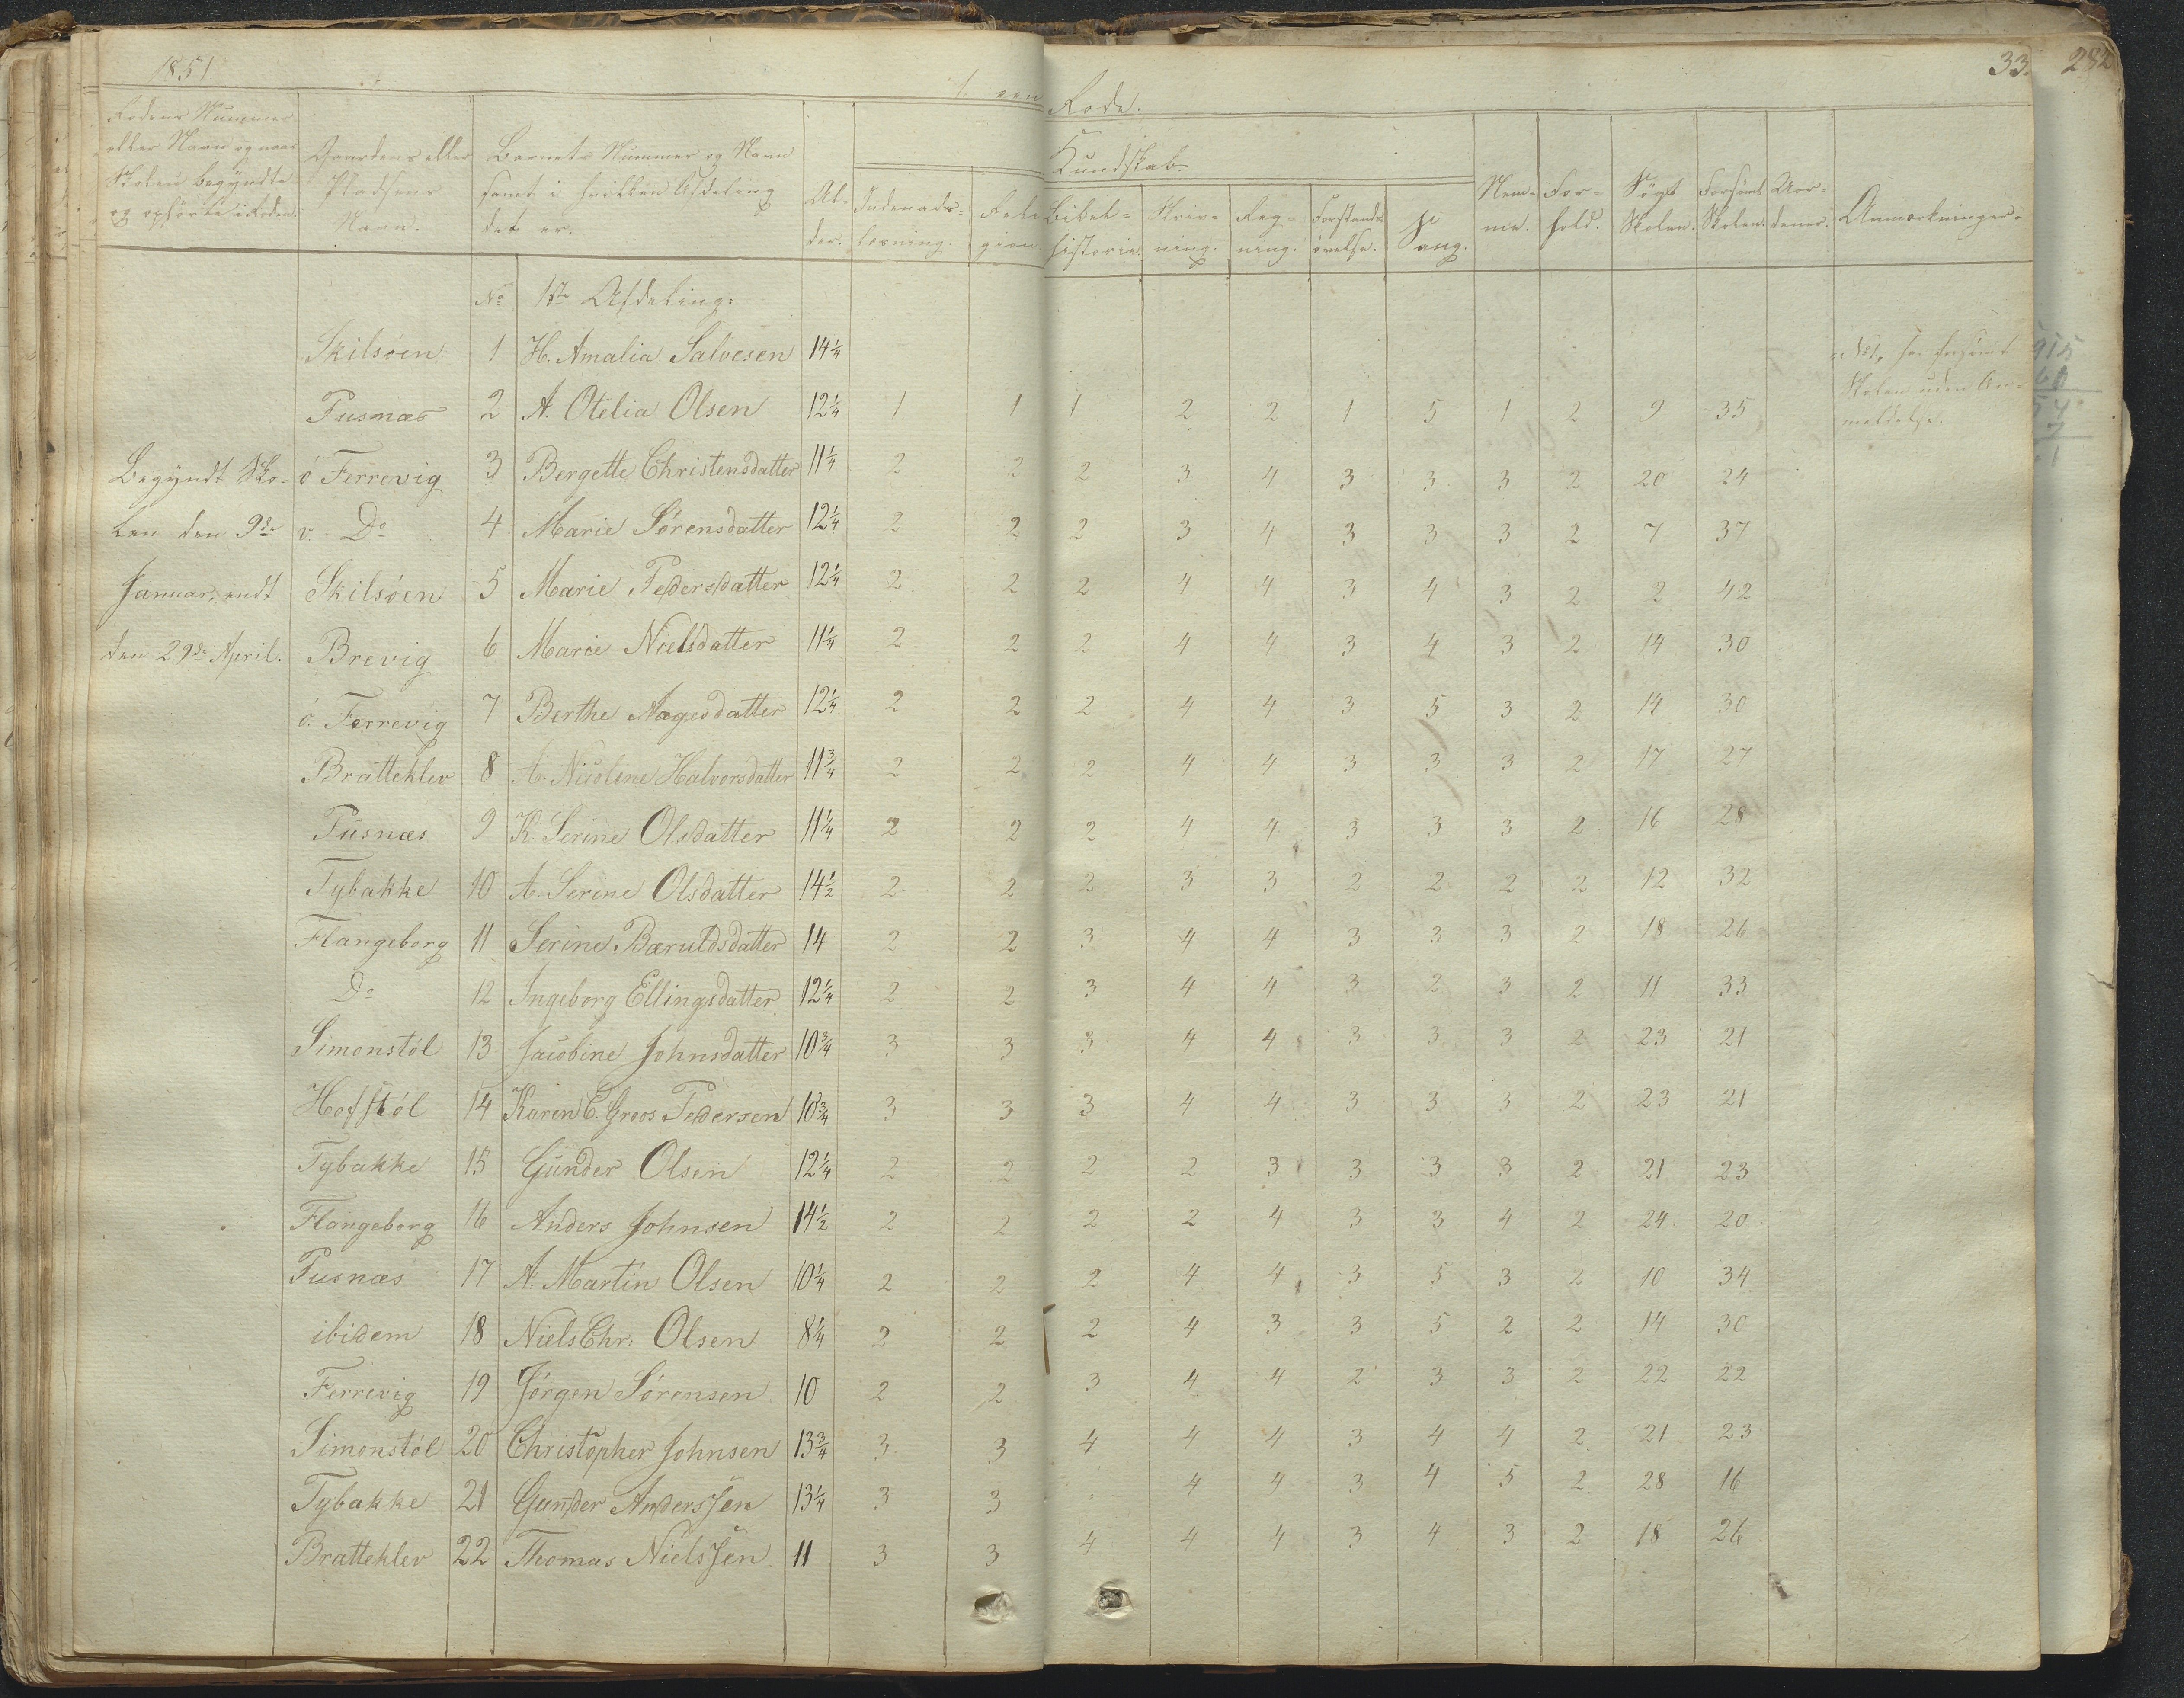 1851
1. een Rode.
33. 282
Rodens Nummer
eller Navn og naar
Skolen begyndte
og ophørte i Roden.
Gaardens eller
Pladsens
Navn.
Barnets Nummer og Navn
samt i hvilken Afdeling
det er.
Al-
der.
Kundskab
Indenads-
læsning.
Reli
gion
Bibel-
historie.
Skriv-
ning.
Reg-
ning.
Forstands-
øvelse.
Sang.
Nem-
me.
For-
hold.
Søgt
Skolen.
Forsømt
Skolen.
Uor-
dener.
Anmærkninger.
No 1ste Afdeling:
Skilsöen 1 H. Amalia Salvesen 14¼
No 1, har forsömt
Skolen uden An-
meldelse.
Pusnæs 2 A. Otilia Olsen 12¼ 1 1 1 2 2 1 5 1 2 9 35
Begyndt Sko- ö Ferrevig 3 Bergette Christensdatter 11¼ 2 2 2 3 4 3 3 3 2 20 24
len den 9de v. Do 4 Marie Sörensdatter 12¼ 2 2 2 3 4 3 3 3 2 7 37
Januar, endt Skilsöen 5 Marie Pedersdatter 12¼ 2 2 2 4 4 3 4 3 2 2 42
den 29de April. Brevig 6 Marie Nielsdatter 11¼ 2 2 2 4 4 3 4 3 2 14 30
ö. Ferrevig 7 Berthe Aagesdatter 12¼ 2 2 2 4 4 3 5 3 2 14 30
Bratteklev 8 A. Nicoline Halvorsdatter 11¾ 2 2 2 4 4 3 3 3 2 17 27
Pusnæs 9 K. Serine Olsdatter 11¼ 2 2 2 4 4 3 3 3 2 16 28
Tybakke 10 A. Serine Olsdatter 14½ 2 2 2 3 3 2 2 2 2 12 32
Flangeborg 11 Serine Bæruldsdatter 14 2 2 3 4 4 3 3 3 2 18 26
Do 12 Ingeborg Ellingsdatter 12¼ 2 2 3 4 4 3 2 3 2 11 33
Simonstöl 13 Jacobine Johnsdatter 10¾ 3 3 3 4 4 3 3 3 2 23 21
Hofstöl 14 Karen C. Groos Pedersen 10¾ 3 3 3 4 4 3 3 3 2 23 21
Tybakke 15 Gunder Olsen 12¼ 2 2 2 2 3 3 3 3 2 21 23
Flangeborg 16 Anders Johnsen 14½ 2 2 2 2 4 3 3 4 2 24 20
Pusnæs 17 A. Martin Olsen 10¼ 2 2 2 4 4 3 5 3 2 10 34
ibidem 18 Niels Chr: Olsen 8¼ 2 2 2 4 3 3 5 2 2 14 30
Ferrevig 19 Jörgen Sörensen 10 2 2 3 4 4 2 3 3 2 22 22
Simonstöl 20 Christopher Johnsen 13¾ 3 3 4 4 4 3 4 4 2 21 23
Tybakke 21 Gunder Anderssen 13¼ 3 3 4 4 3 4 5 2 28 16
Bratteklev 22 Thomas Nielssen 11 3 3 4 4 4 3 4 3 2 18 26